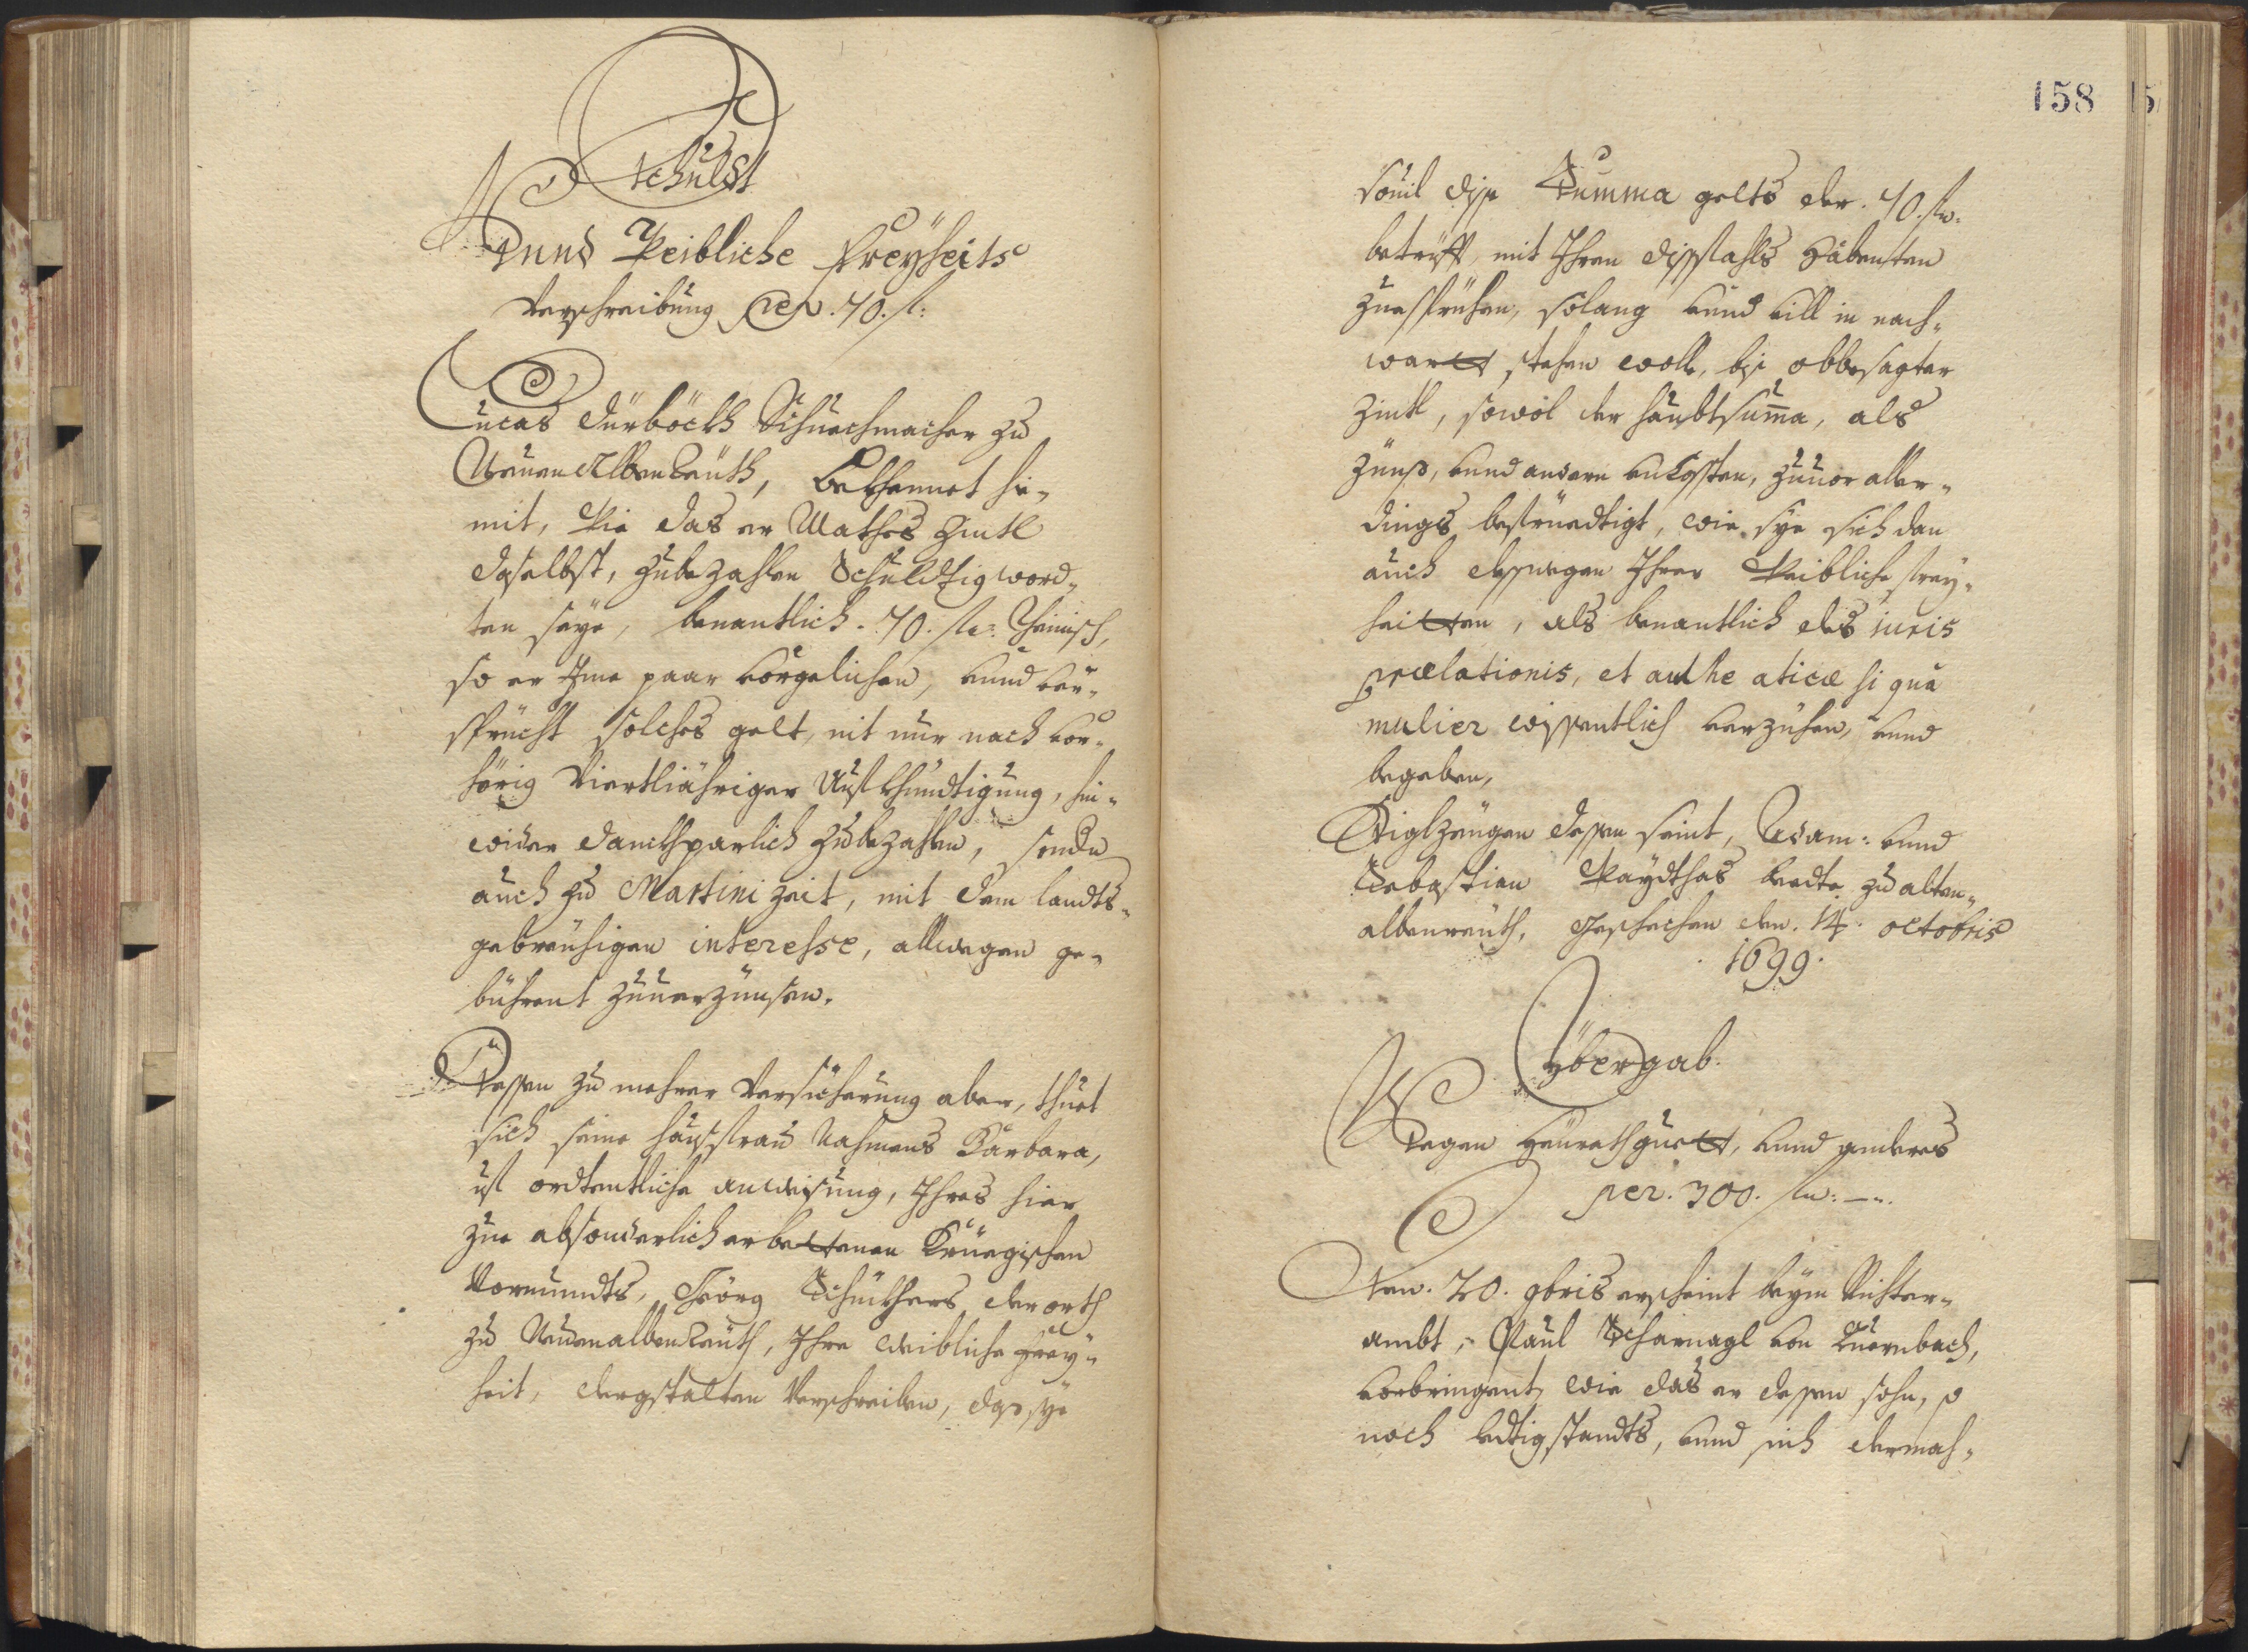 Schuldt
Unnd Weibliche Freyheits
Verschreibung per .70. fl:
Lucas Dürböckh Schuechmacher zu
Neuen Albenreuth, bekhennet hie-
mit, Wie das er Mathes Zintl
daselbst, zubezahlen Schuldtig word-
ten seye, benantlich .70. fl: Reinisch,
so er Ime paar vorgelichen, unnd ver-
spricht solches gelt, nit nur nach vor-
hörig Viertljähriger Aufkhündtigung, hin-
wider danckhparlich zubezahlen, sonder
auch zu Martini zeit, mit dem landts-
gebreuhigen interesse, allwegen ge-
bührent zuuerzünsen.
Dessen zu mehrer Versicherung aber, thuet
sich seine haußfrau Nahmens Barbara,
uf ordtentliche anweisung, Ihres hier-
zue absonderlich erbettenen Kriegischen
Vormundts, Geörg Schuchers, der orth
zu Neuenalbenreuth, Ihre weibliche Frey-
heit, dergstalten Verschreiben, das sye
158
souil dise Summa gelts der .70. fl:
betrifft, mit Ihren dißfahls habenten
zuesprühen, solang unnd vill in nach-
wartt stehen wolle, bis obbesagter
Zintl, sowol der haubtsumma, als
zünß, unnd andern unkosten, zuuor aller-
dings befriedtigt, wie sye sich dan
auch desswegen Ihrer Weibliche frey-
heitten, als benantlich des iuris
prælationis, et authe aticæ si qua
mulier wissentlich verzühen, unnd
begeben,
Siglzeugen dessen seint, Adam: unnd
Sebastian Waydthas beede zu alten-
albenreuth, Geschechen den. 14. octobris
.1699.
Übergab.
Wegen Heurathguett, unnd anders
per. 300. fl: —.
Den. 20. 9bris erscheint beym Richter-
ambt, Paul Scharnagl von Querenbach,
vorbringent, wie das er dessen sohn, so
noch ledtig standts, unnd sich dermah-